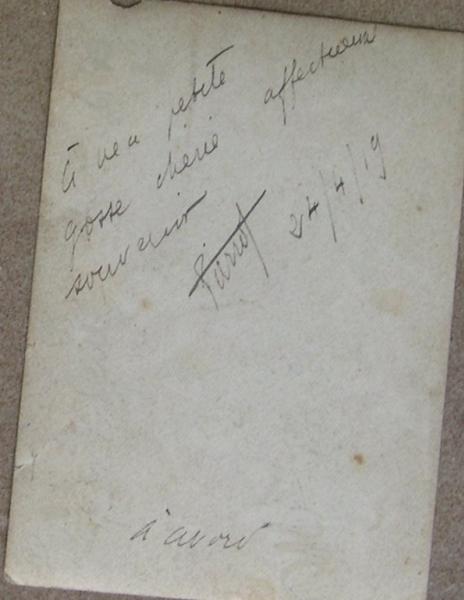 à ma petite
gosse cherie affectueux
souvenir
Pierrot 24/4/19
à avord